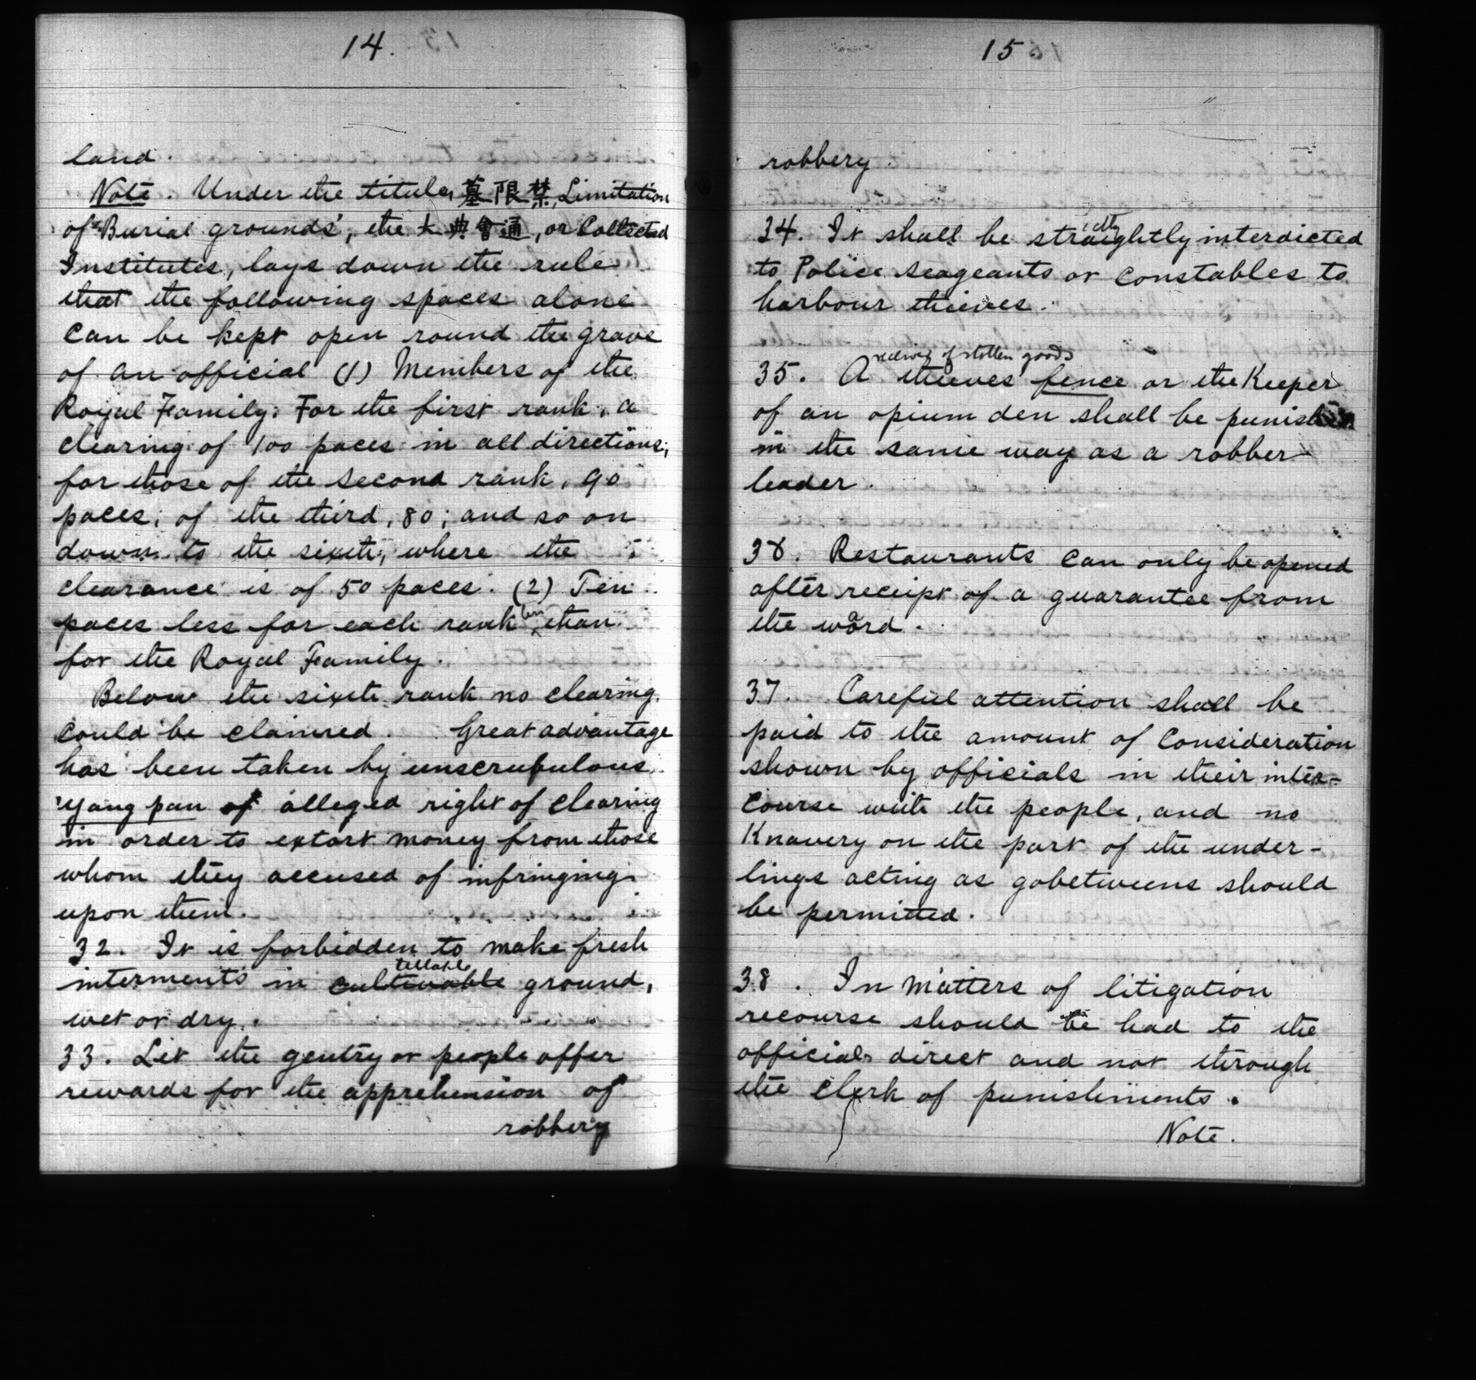 14.
land.
Note. Under the title, 墓限禁, Limitation
of "Burial grounds", the 大典會通, or Collected
Institutes, lays down the rule
that the following spaces alone
can be kept open round the grave
of an official (1) Members of the
Royal Family: For the first rank, a
clearing of 100 paces in all directions;
for those of the second rank, 90
paces; of the third, 80; and so on
down to the sixth, where the
clearance is of 50 paces. (2) Ten
paces less for each rank than
for the Royal Family.
Below the sixth rank no clearing
could be claimed. Great advantage
has been taken by unscrupulous
yang pan of alleged right of clearing
in order to extort money from those
whom they accused of infringing
upon them.
32. It is forbidden to make fresh
tillable
interments in cultivable ground,
wet or dry.
33. Let the gentry or people offer
rewards for the apprehension of
robbery
15
robbery.
34. It shall be straightly interdicted
to Police seageants or constables to
harbour thieves.
of stollen goods
35. A thieves' fence or the Keeper
of an opium den shall be punished
in the same way as a robber
leader.
36. Restaurants can only be opened
after receipt of a guarantee from
the ward.
37. Careful attention shall be
paid to the amount of consideration
shown by officials in their inter-
course with the people, and no
Knavery on the part of the under-
lings acting as gobetweens should
be permitted.
38. In matters of litigation
recourse should be had to the
officials direct and not through
the clerk of punishments.
Note.